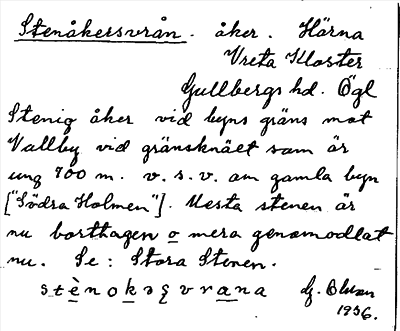 Stenåkersvrån. åker. Härna
Vreta Kloster
Gullbergs hd. Ögl
Stenig åker vid byns gräns mot
Vallby vid gränsknäet som är
ung 700 m. v.s.v. om gamla byn
["Södra Holmen"]. Mesta stenen är
nu borttagen o mera genomodlat
nu. Se: Stora Stenen.
stènokəʂvrana
1936.